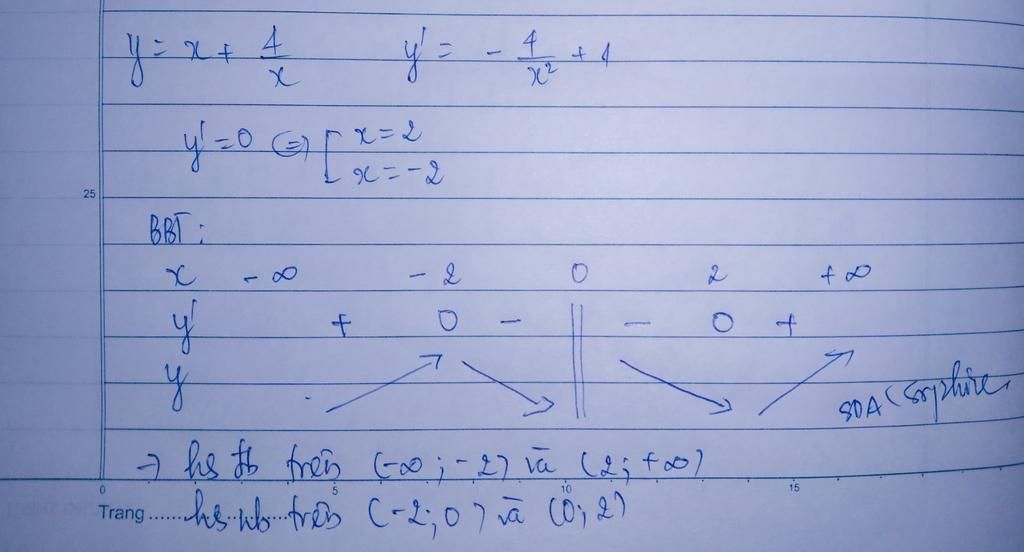 y = x + 4/x y' = - 4/x² + 1
y' = 0 ⇔ [ x = 2
x = -2
25
BBT :
x -∞ -2 0 2 +∞
y' + 0 - || - 0 +
y
SDA (sophire
→ hs đb trên (-∞ ; -2) và (2 ; +∞)
0 5 10 15
Trang
hs nb trên (-2 ; 0) và (0 ; 2)